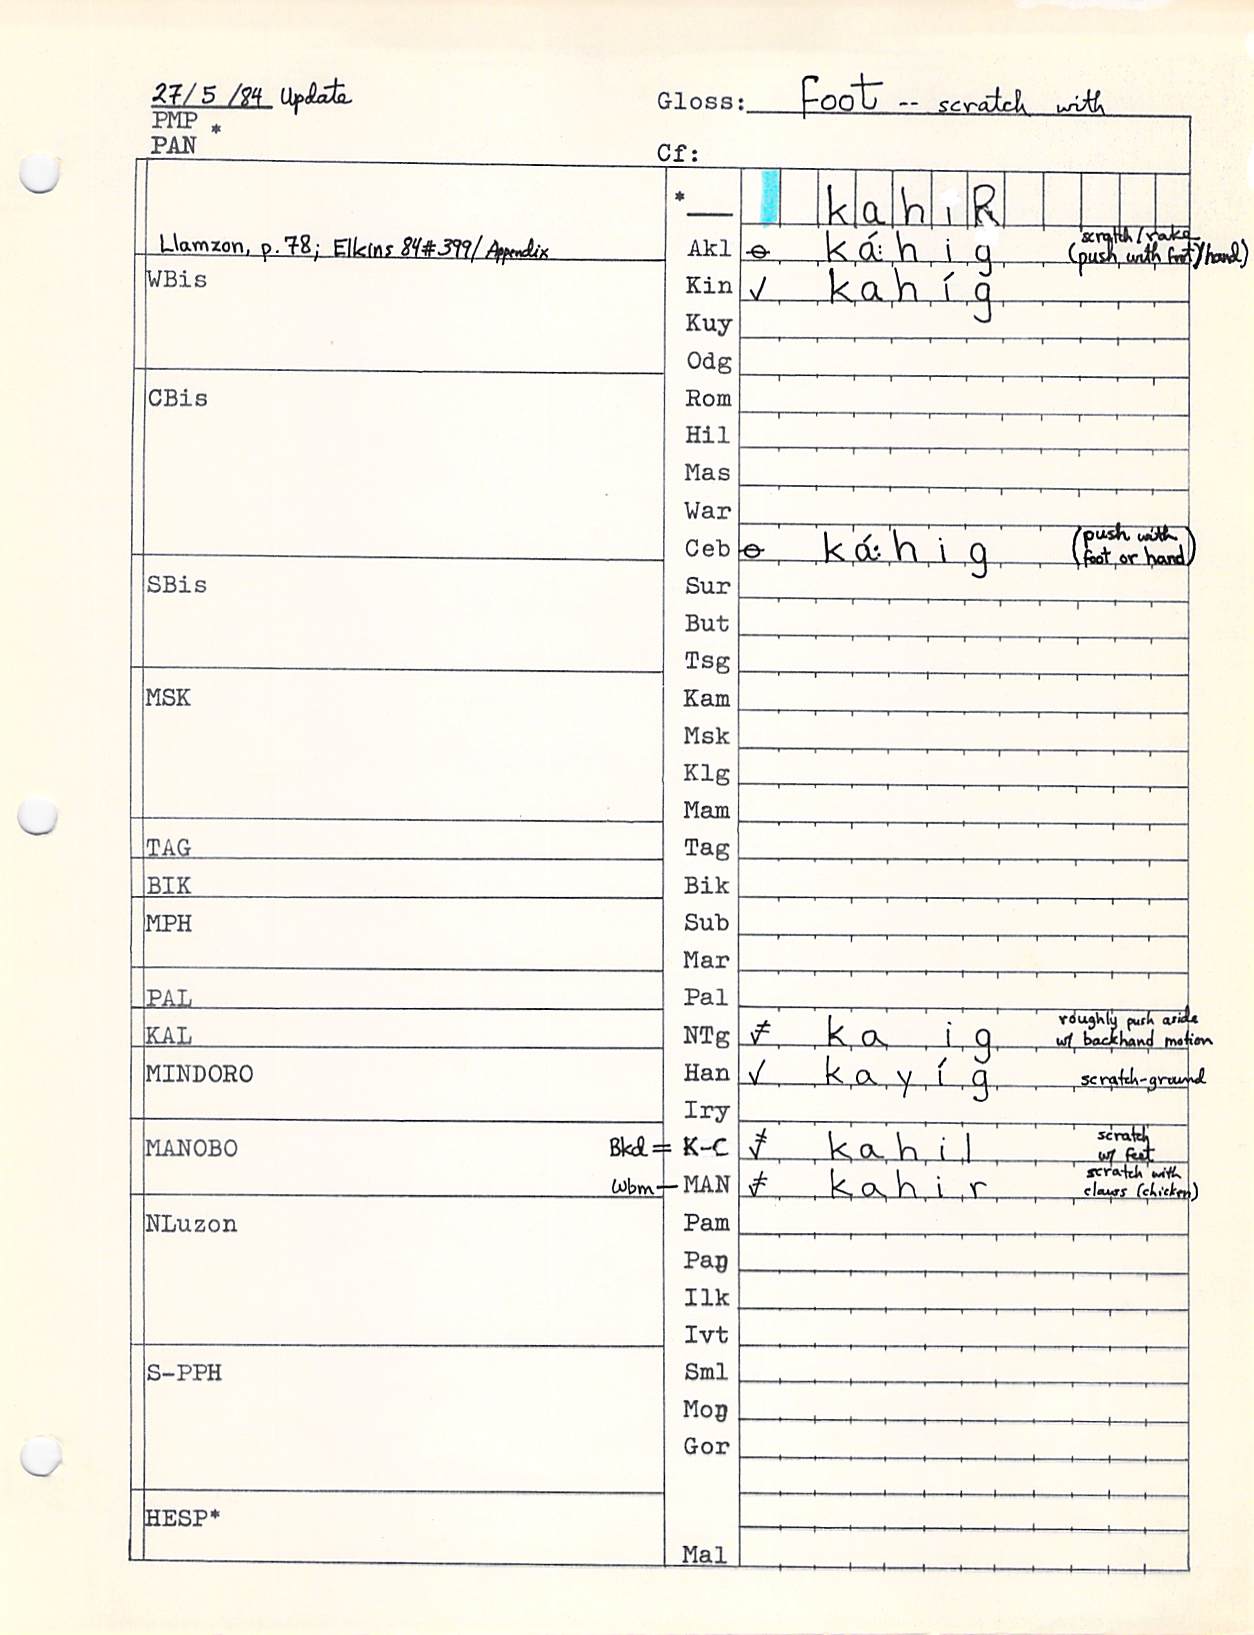 27/5/84 Update
Gloss: Foot -- scratch with
PMP *
PAN
Cf:
*__ kahiR
Llamzon, p.78; Elkins 84#399/ Appendix
Akl ⊖ ká:hig scratch/rake (push with foot/hand)
WBis
Kin ✓ kahíg
Kuy
Odg
CBis
Rom
Hil
Mas
War
Ceb ⊖ ká:hig (push with foot or hand)
SBis
Sur
But
Tsg
MSK
Kam
Msk
Klg
Mam
TAG
Tag
BIK
Bik
MPH
Sub
Mar
PAL
Pal
KAL
NTg ≠ ka ig roughly push aside w/ backhand motion
MINDORO
Han ✓ kayíg scratch-ground
Iry
MANOBO
Bkd = K-C kahil scratch w/ feet
Wbm — MAN ≠ kahir scratch with claws (chicken)
NLuzon
Pam
Paŋ
Ilk
Ivt
S-PPH
Sml
Moŋ
Gor
HESP*
Mal